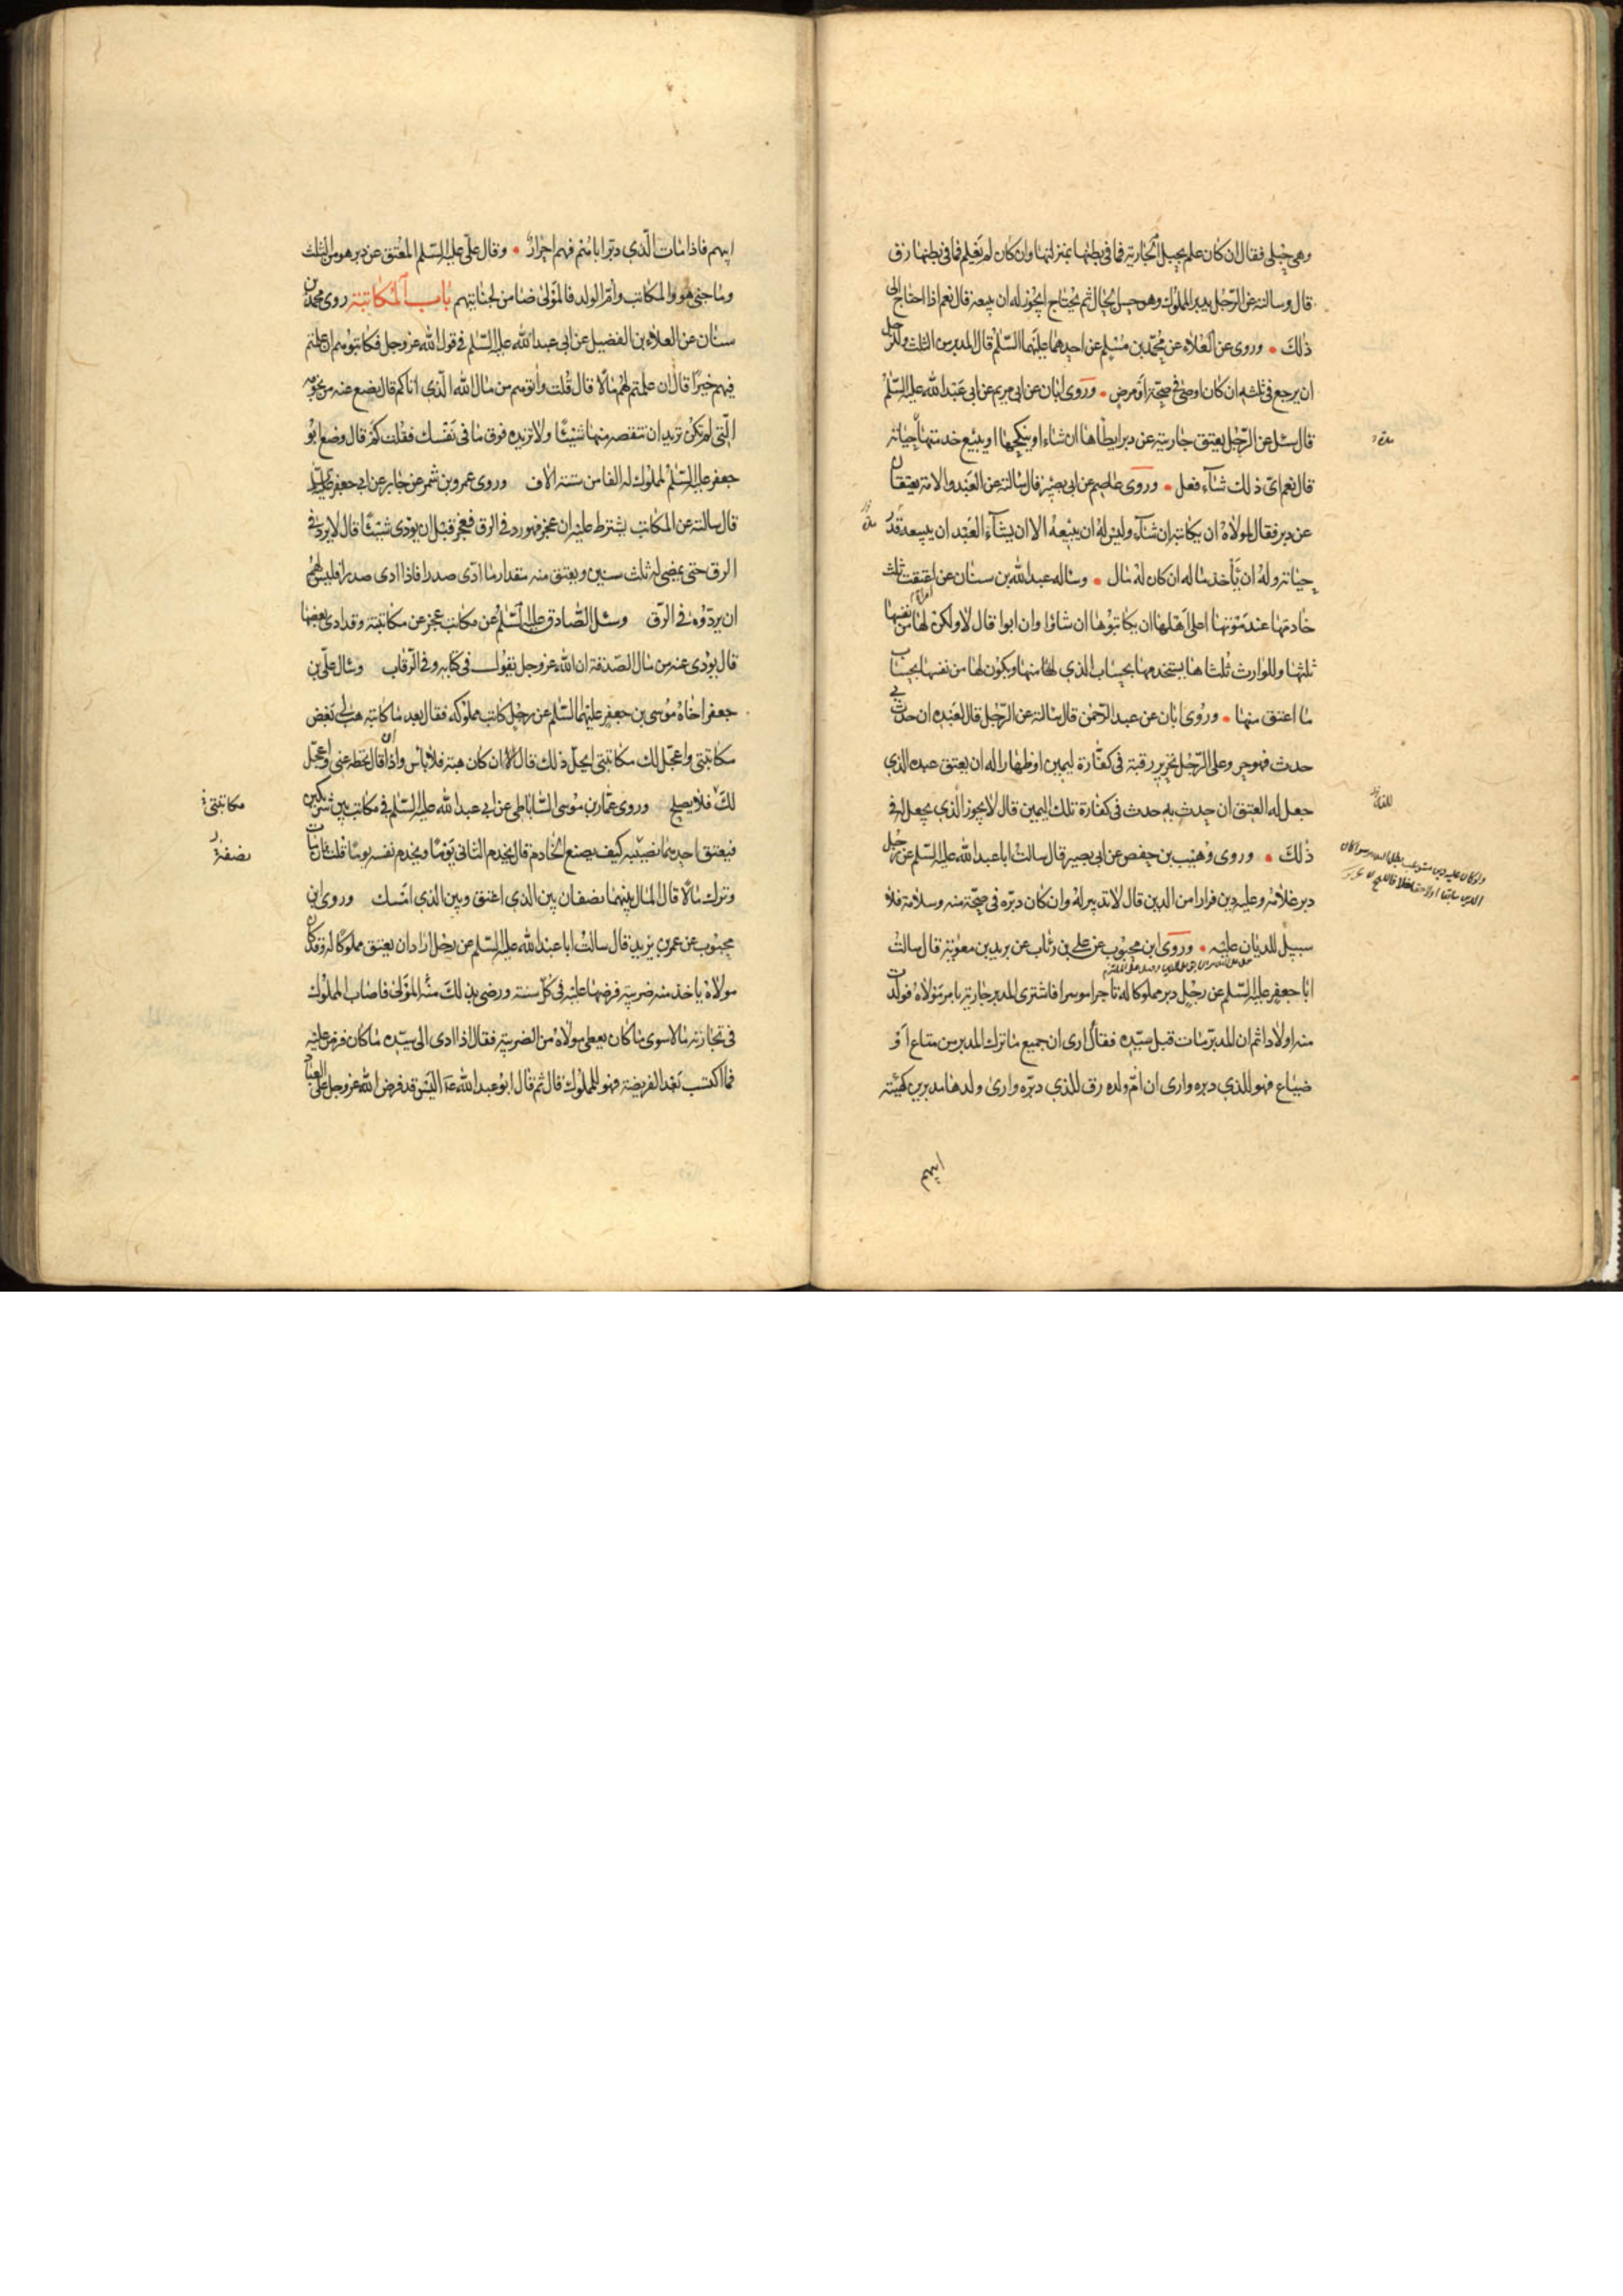 وهي حبلى فقال ان كان علم بحبل الجارية فما في بطنها بمنزلتها وان كان لم يعلم فما في بطنها رق
قال وسالته عن الرجل يدبر المملوك وهو حسن الحال ثم يحتاج ايجوز له ان يبيعه قال نعم اذا احتاج الى
ذلك وروى عن العلاء عن محمد بن مسلم عن احدهما عليهما السلم قال المدبر من الثلث وللرجل
ان يرجع في ثلثه ان كان اوصى في صحة او مرض وروى ابان عن ابي مريم عن ابي عبد الله عليه السلم
قال سئل عن الرجل يعتق جاريته عن دبر ايطاها ان شاء او ينكحها او يبيع خدمتها حياته
قال نعم اي ذلك شاء فعل وروى عاصم عن ابي بصير قال سالته عن العبد والامة يعتقان
عن دبر فقال لمولاه ان يكاتبه ان شاء وليس له ان يبيعه الا ان يشاء العبد ان يبيعه قدر
حياته وله ان ياخذ ماله ان كان له مال وساله عبد الله بن سنان عن امراة اعتقت ثلث
خادمتها عند موتها اعلى اهلها ان يكاتبوها ان شاؤا وان ابوا قال لا ولكن لها من نفسها
ثلثها وللوارث ثلثاها يستخدمها بحساب الذي له منها ويكون لها من نفسها بحساب
ما اعتق منها وروى ابان عن عبد الرحمن قال سالته عن الرجل قال لعبده ان حدث بي
حدث فهو حر وعلى الرجل تحرير رقبة في كفارة يمين او ظهار اله ان يعتق عبده الذي
جعل له العتق ان حدث به حدث في كفارة تلك اليمين قال لا يجوز الذي يجعل له في
ذلك وروى وهيب بن حفص عن ابي بصير قال سالت ابا عبد الله عليه السلم عن رجل
دبر غلامه وعليه دين فرارا من الدين قال لا تدبير له وان كان دبره في صحة منه وسلامة فلا
سبيل للديان عليه وروى ابن محبوب عن علي بن رئاب عن بريد بن معوية قال سالت
ابا جعفر عليه السلم عن رجل دبر مملوكا له تاجرا موسرا فاشترى المدبر جارية بامر مولاه فولدت
منه اولادا ثم ان المدبر مات قبل سيده فقال ارى ان جميع ما ترك المدبر من متاع او
ضياع فهو للذي دبره وارى ان ام ولده رق للذي دبره وارى ولدها مدبرين كهيئة
ابيهم
ابيهم فاذا مات الذي دبر اباهم فهم احرار وقال علي عليه السلم المعتق عن دبر هو من الثلث
وما جنى هو والمكاتب وام الولد فالمولى ضامن لجنايتهم باب المكاتبة روى محمد بن
سنان عن العلاء بن الفضيل عن ابي عبد الله عليه السلم في قول الله عز وجل فكاتبوهم ان علمتم
فيهم خيرا قال ان علمتم لهم مالا قال قلت واتوهم من مال الله الذي اتاكم قال يضع عنه من نجومه
التي لم تكن تريد ان تنقصه منها شيئا ولا تزيده فوق ما في نفسك فقلت كم قال وضع ابو
جعفر عليه السلم لمملوك له الفا من ستة الاف وروى عمرو بن شمر عن جابر عن ابي جعفر عليه السلم
قال سالته عن المكاتب يشترط عليه ان عجز فهو رد في الرق فعجز قبل ان يؤدى شيئا قال لا يرد في
الرق حتى يمضي له ثلث سنين ويعتق منه مقدار ما ادى صدرا فاذا ادى صدرا فليس لهم
ان يردوه في الرق وسئل الصادق عليه السلم عن مكاتب عجز عن مكاتبته وقد ادى بعضها
قال يؤدى عنه من مال الصدقة ان الله عز وجل يقول في كتابه وفي الرقاب وسال علي بن
جعفر اخاه موسى بن جعفر عليهما السلم عن رجل كاتب مملوكه فقال بعد ما كاتبه هب لي بعض
مكاتبتي واعجل لك مكاتبتي ايحل ذلك قال ان كان هبة فلا باس وان قال تحط عني واعجل
لك فلا يصلح وروى عمار بن موسى الساباطي عن ابي عبد الله عليه السلم في مكاتب بين شريكين
مكاتبتي
فيعتق احدهما نصيبه كيف يصنع الخادم قال يخدم الثاني يوما ويخدم نفسه يوما قلت فان مات
نصفين
وترك مالا قال المال بينهما نصفان بين الذي اعتق وبين الذي امسك وروى ابن
محبوب عن عمر بن يزيد قال سالت ابا عبد الله عليه السلم عن رجل اراد ان يعتق مملوكا له وقد كان
مولاه ياخذ منه ضريبة فرضها عليه في كل سنة ورضي بذلك منه المولى فاصاب المملوك
في تجارته مالا سوى ما كان يعطي مولاه من الضريبة فقال اذا ادى الى سيده ما كان فرض عليه
فما اكتسب بعد الفريضة فهو للمملوك قال ثم قال ابو عبد الله ع اليس قد فرض الله عز وجل على العباد